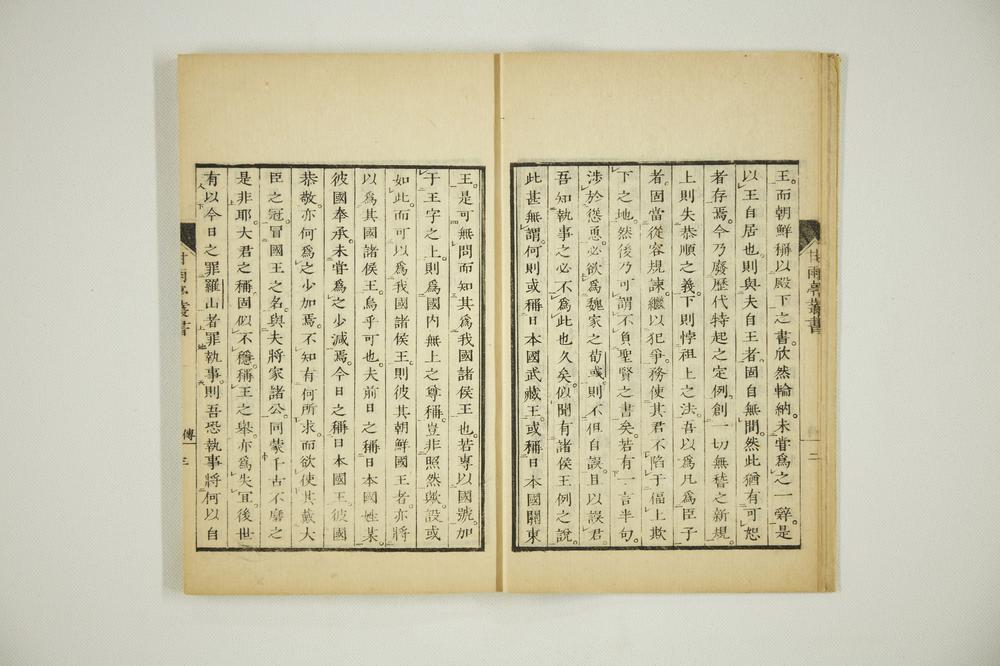 王而朝鮮稱以殿下之書欣然輸納未嘗爲之一辭是
以王自居也則與夫自王者固自無間然此猶有可恕
者存焉今乃廢歷代特起之定例創一切無稽之新規
上則失恭順之義下則悖祖上之法吾以爲凡爲臣子
者固當從容規諫繼以犯爭務使其君不陷于偪上欺
下之地然後乃可謂不負聖賢之書矣若有一言半句
涉於慫慂必欲爲魏家之荀彧則不但自誤且以誤君
吾知執事之必不爲此也久矣似聞有諸侯王例之說
此甚無謂何則或稱日本國武藏王或稱日本國關東
王是可無問而知其爲我國諸侯王也若專以國號加
于王字之上則爲國內無上之尊稱豈非照然歟設或
如此而可以爲我國諸侯王則彼其朝鮮國王者亦將
以爲其國諸侯王烏乎可也夫前日之稱日本國姓某
彼國奉承未嘗爲之少減焉今日之稱日本國王彼國
恭敬亦何爲之少加焉不知有何所求而欲使其戴大
臣之冠冒國王之名與夫將家諸公同蒙千古不磨之
是非耶大君之稱固似不穩稱王之舉亦爲失宜後世
有以今日之罪羅山者罪執事則吾恐執事將何以自
甘雨亭叢書
二
甘雨亭叢書
傳
三